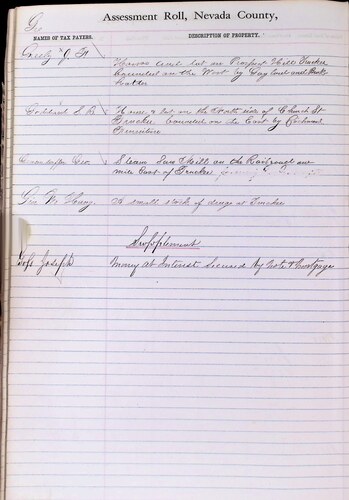 Assessment Roll, Nevada County,
NAMES OF TAX PAYERS.
DESCRIPTION OF PROPERTY.
House and lot on Prospect Hill Truckee
bounded on the West by Gaylord and
House & lot on the North side of Church St
Truckee bounded on the East by Richmond
Steam Saw Mill on the Railroad one
mile East of Truckee
Geo W.
A small stock of drugs at Truckee
Supplement
Goss Joseph
Money at Interest Secured by Note & Mortgage